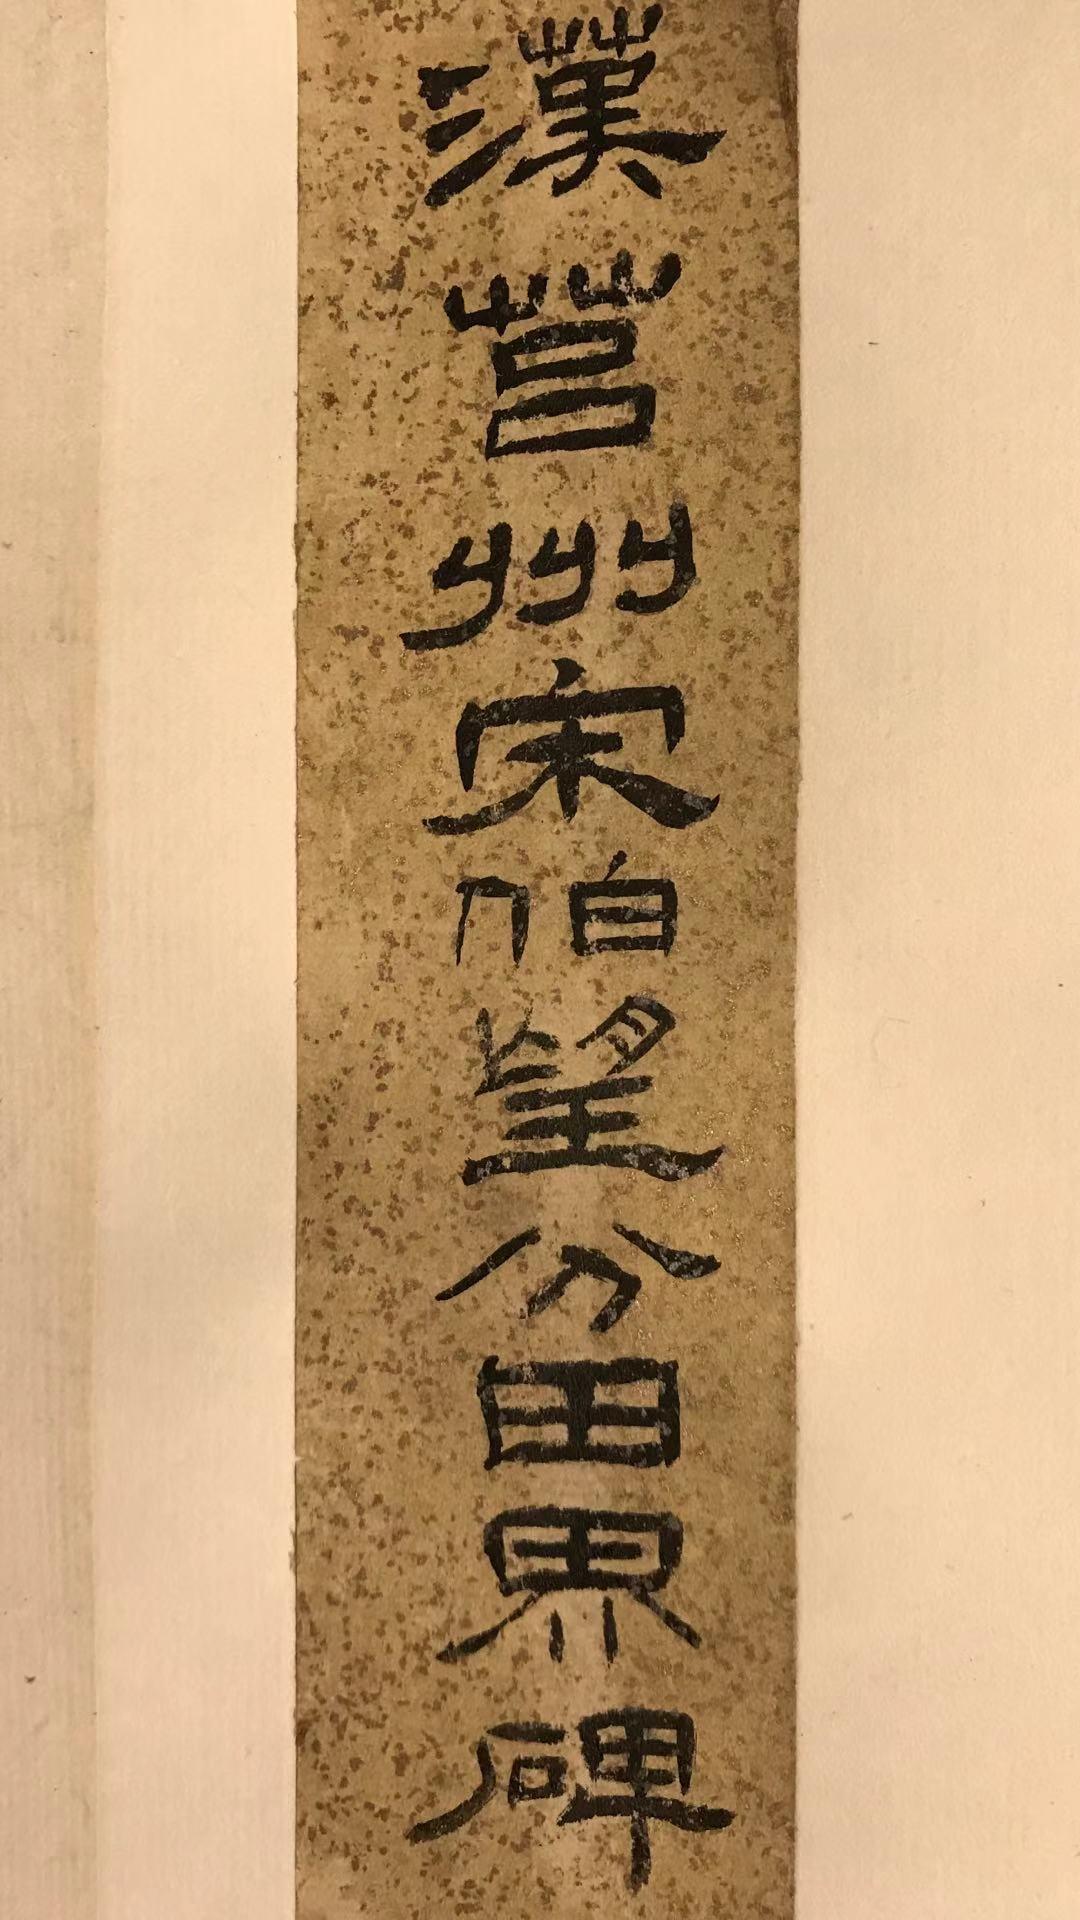 漢莒州宋伯望分田界碑